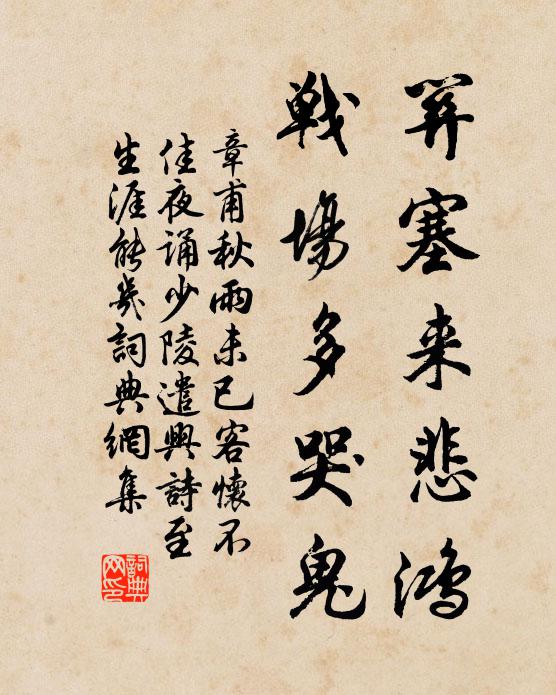 塞来悲鴻
戦場多哭鬼
章甫秋雨未已客懷不
佳夜誦少陵遣興詩至
生涯能幾詞典網集
詞典
网印